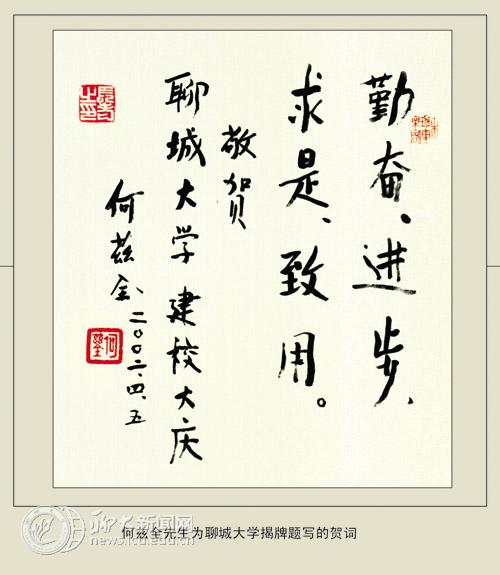 勤奋、进步、
求是、致用。
敬贺
聊城大学建校大庆
何兹全二〇〇二、四、五
聊大新闻网
news.lcu.edu.cn
何兹全先生为聊城大学揭牌题写的贺词